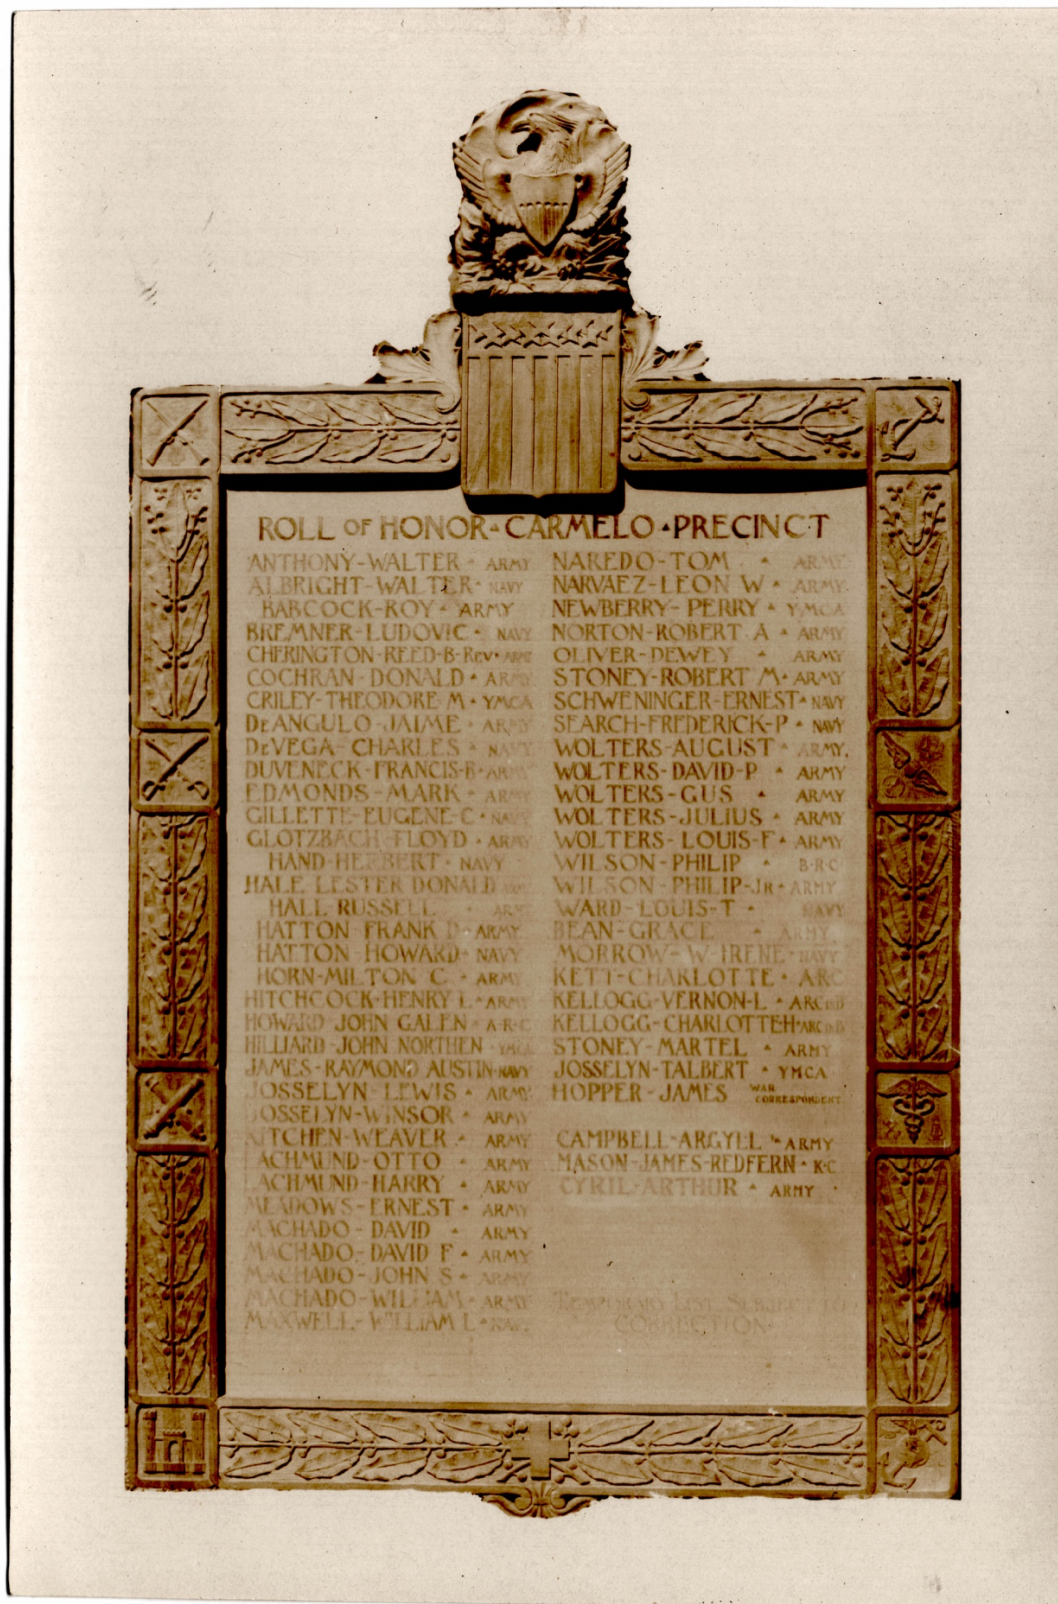 ROLL OF HONOR · CARMELO · PRECINCT
ANTHONY-WALTER · ARMY
ALBRIGHT-WALTER · NAVY
BABCOCK-ROY · ARMY
BREMNER-LUDOVIC · NAVY
CHERINGTON-REED-B-REV · ARMY
COCHRAN-DONALD · ARMY
CRILEY-THEODORE-M · YMCA
DEANGULO-JAIME · ARMY
DEVEGA-CHARLES · NAVY
DUVENECK-FRANCIS-B · ARMY
EDMONDS-MARK · ARMY
GILLETTE-EUGENE-C · NAVY
GLOTZBACH-FLOYD · ARMY
HAND-HERBERT · NAVY
HALE LESTER DONALD
HALL RUSSELL · ARMY
HATTON-FRANK D · ARMY
HATTON HOWARD · NAVY
HORN-MILTON C · ARMY
HITCHCOCK-HENRY L · ARMY
HOWARD-JOHN GALEN · A·R·C
HILLIARD-JOHN NORTHEN · YMCA
JAMES-RAYMOND AUSTIN · NAVY
JOSSELYN-LEWIS · ARMY
JOSSELYN-WINSOR · ARMY
KITCHEN-WEAVER · ARMY
LACHMUND-OTTO · ARMY
LACHMUND-HARRY · ARMY
MEADOWS-ERNEST · ARMY
MACHADO-DAVID · ARMY
MACHADO-DAVID F · ARMY
MACHADO-JOHN S · ARMY
MACHADO-WILLIAM · ARMY
MAXWELL-WILLIAM L · NAVY
NAREDO-TOM · ARMY
NARVAEZ-LEON W · ARMY
NEWBERRY-PERRY · YMCA
NORTON-ROBERT A · ARMY
OLIVER-DEWEY · ARMY
STONEY-ROBERT M · ARMY
SCHWENINGER-ERNEST · NAVY
SEARCH-FREDERICK-P · NAVY
WOLTERS-AUGUST · ARMY.
WOLTERS-DAVID-P · ARMY
WOLTERS-GUS · ARMY
WOLTERS-JULIUS · ARMY
WOLTERS-LOUIS-F · ARMY
WILSON-PHILIP · B·R·C
WILSON-PHILIP-JR · ARMY
WARD-LOUIS-T · NAVY
BEAN-GRACE · ARMY
MORROW-W-IRENE · NAVY
KETT-CHARLOTTE · ARC
KELLOGG-VERNON-L · ARC
KELLOGG-CHARLOTTE H · ARC
STONEY-MARTEL · ARMY
JOSSELYN-TALBERT · YMCA
HOPPER-JAMES WAR CORRESPONDENT
CAMPBELL-ARGYLL · ARMY
MASON-JAMES-REDFERN · K·C
CYRIL-ARTHUR · ARMY
TEMPORARY LIST SUBJECT TO
CORRECTION